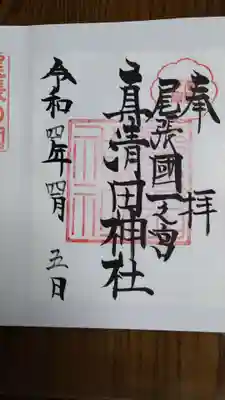 奉拝
尾張國一之宮
真清田神社
令和四年四月五日